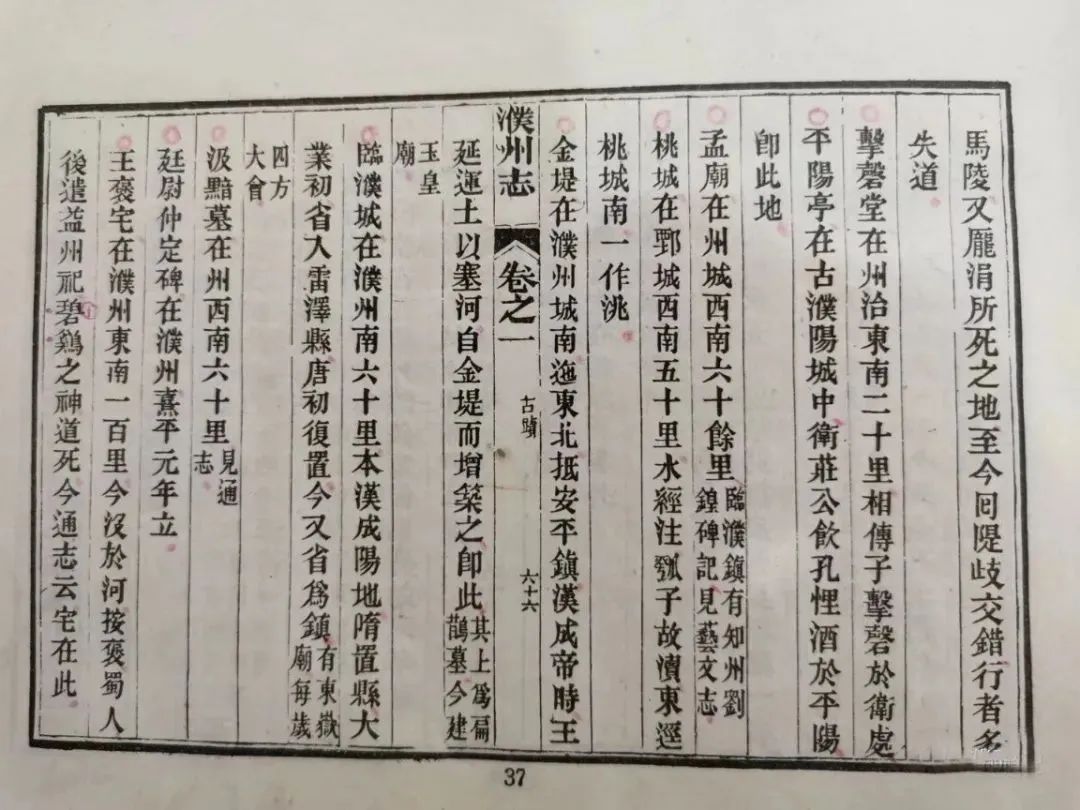 馬陵又龎涓所死之地至今囘隄歧交錯行者多
失道
擊磬堂在州治東南二十里相傳子擊磬於衛處
平陽亭在古濮陽城中衛莊公飲孔悝酒於平陽
卽此地
孟廟在州城西南六十餘里臨濮鎮有知州劉
鍠碑記見藝文志
桃城在鄄城西南五十里水經注瓠子故瀆東逕
桃城南一作洮
金堤在濮州城南迤東北抵安平鎮漢成帝時王
濮州志
卷之一
古蹟
六十六
延運土以塞河自金堤而增築之卽此其上爲扁
鵲墓今建
玉皇
廟
臨濮城在濮州南六十里本漢成陽地隋置縣大
業初省入雷澤縣唐初復置今又省爲鎮有東嶽
廟每歲
四方
大會
汲黯墓在州西南六十里見通
志
廷尉仲定碑在濮州熹平元年立
王褒宅在濮州東南一百里今沒於河按褒蜀人
後遣益州祀碧鷄之神道死今通志云宅在此
37